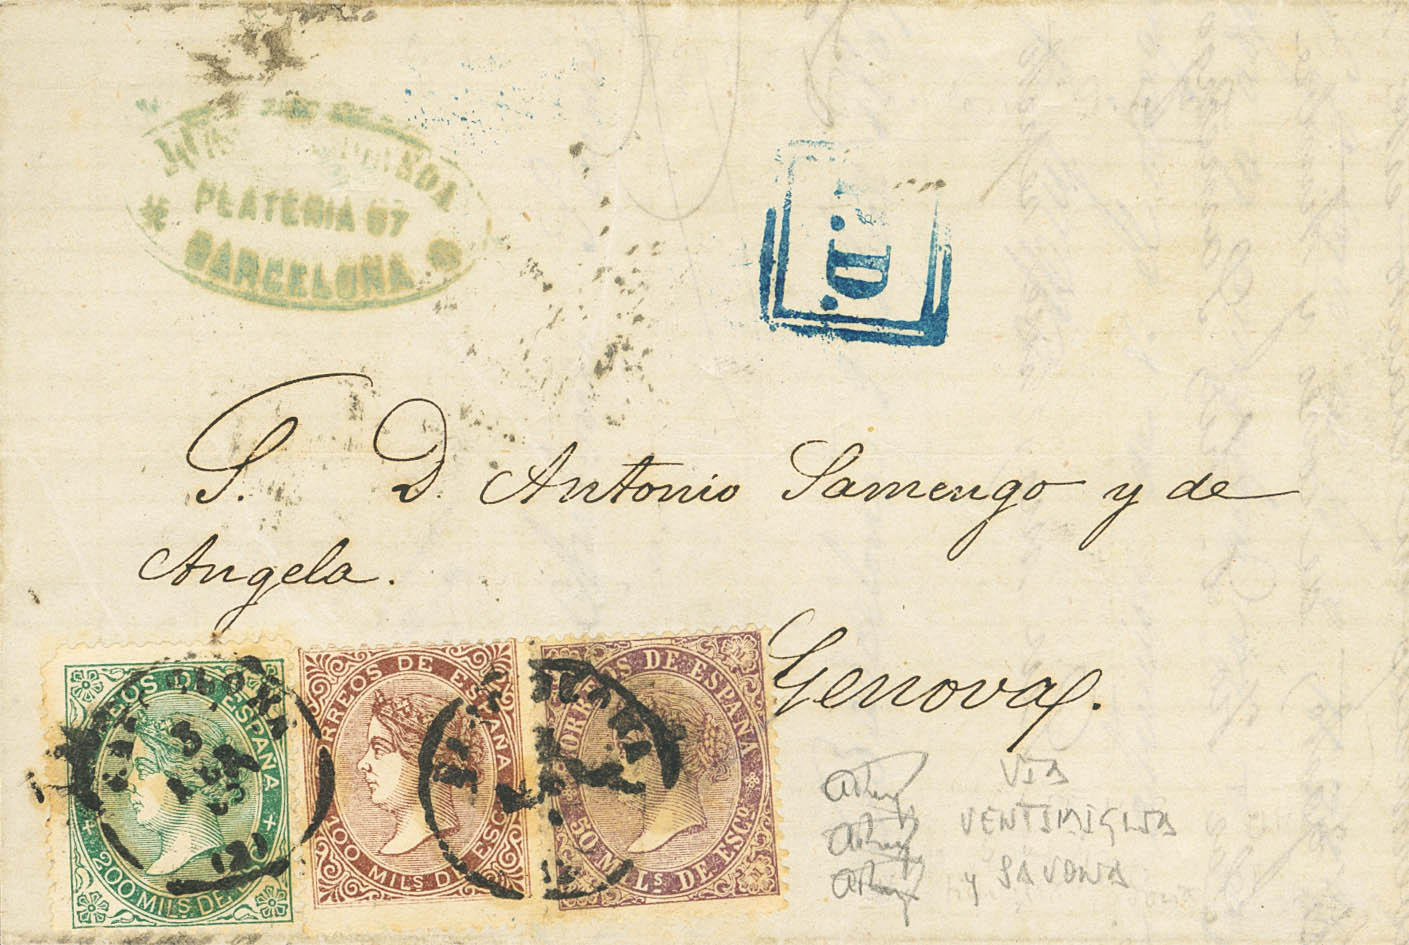 PLATERIA 57
BARCELONA
P.D.
S. D. Antonio Samengo y de
Angela.
Genova.
CORREOS DE ESPAÑA
200 MILS DE ESCO
BARCELONA
(2)
CORREOS DE ESPAÑA
100 MILS DE ESCO
BARCELONA
CORREOS DE ESPAÑA
50 MILS DE ESCO
VIA
VENTIMIGLIA
y SAVONA